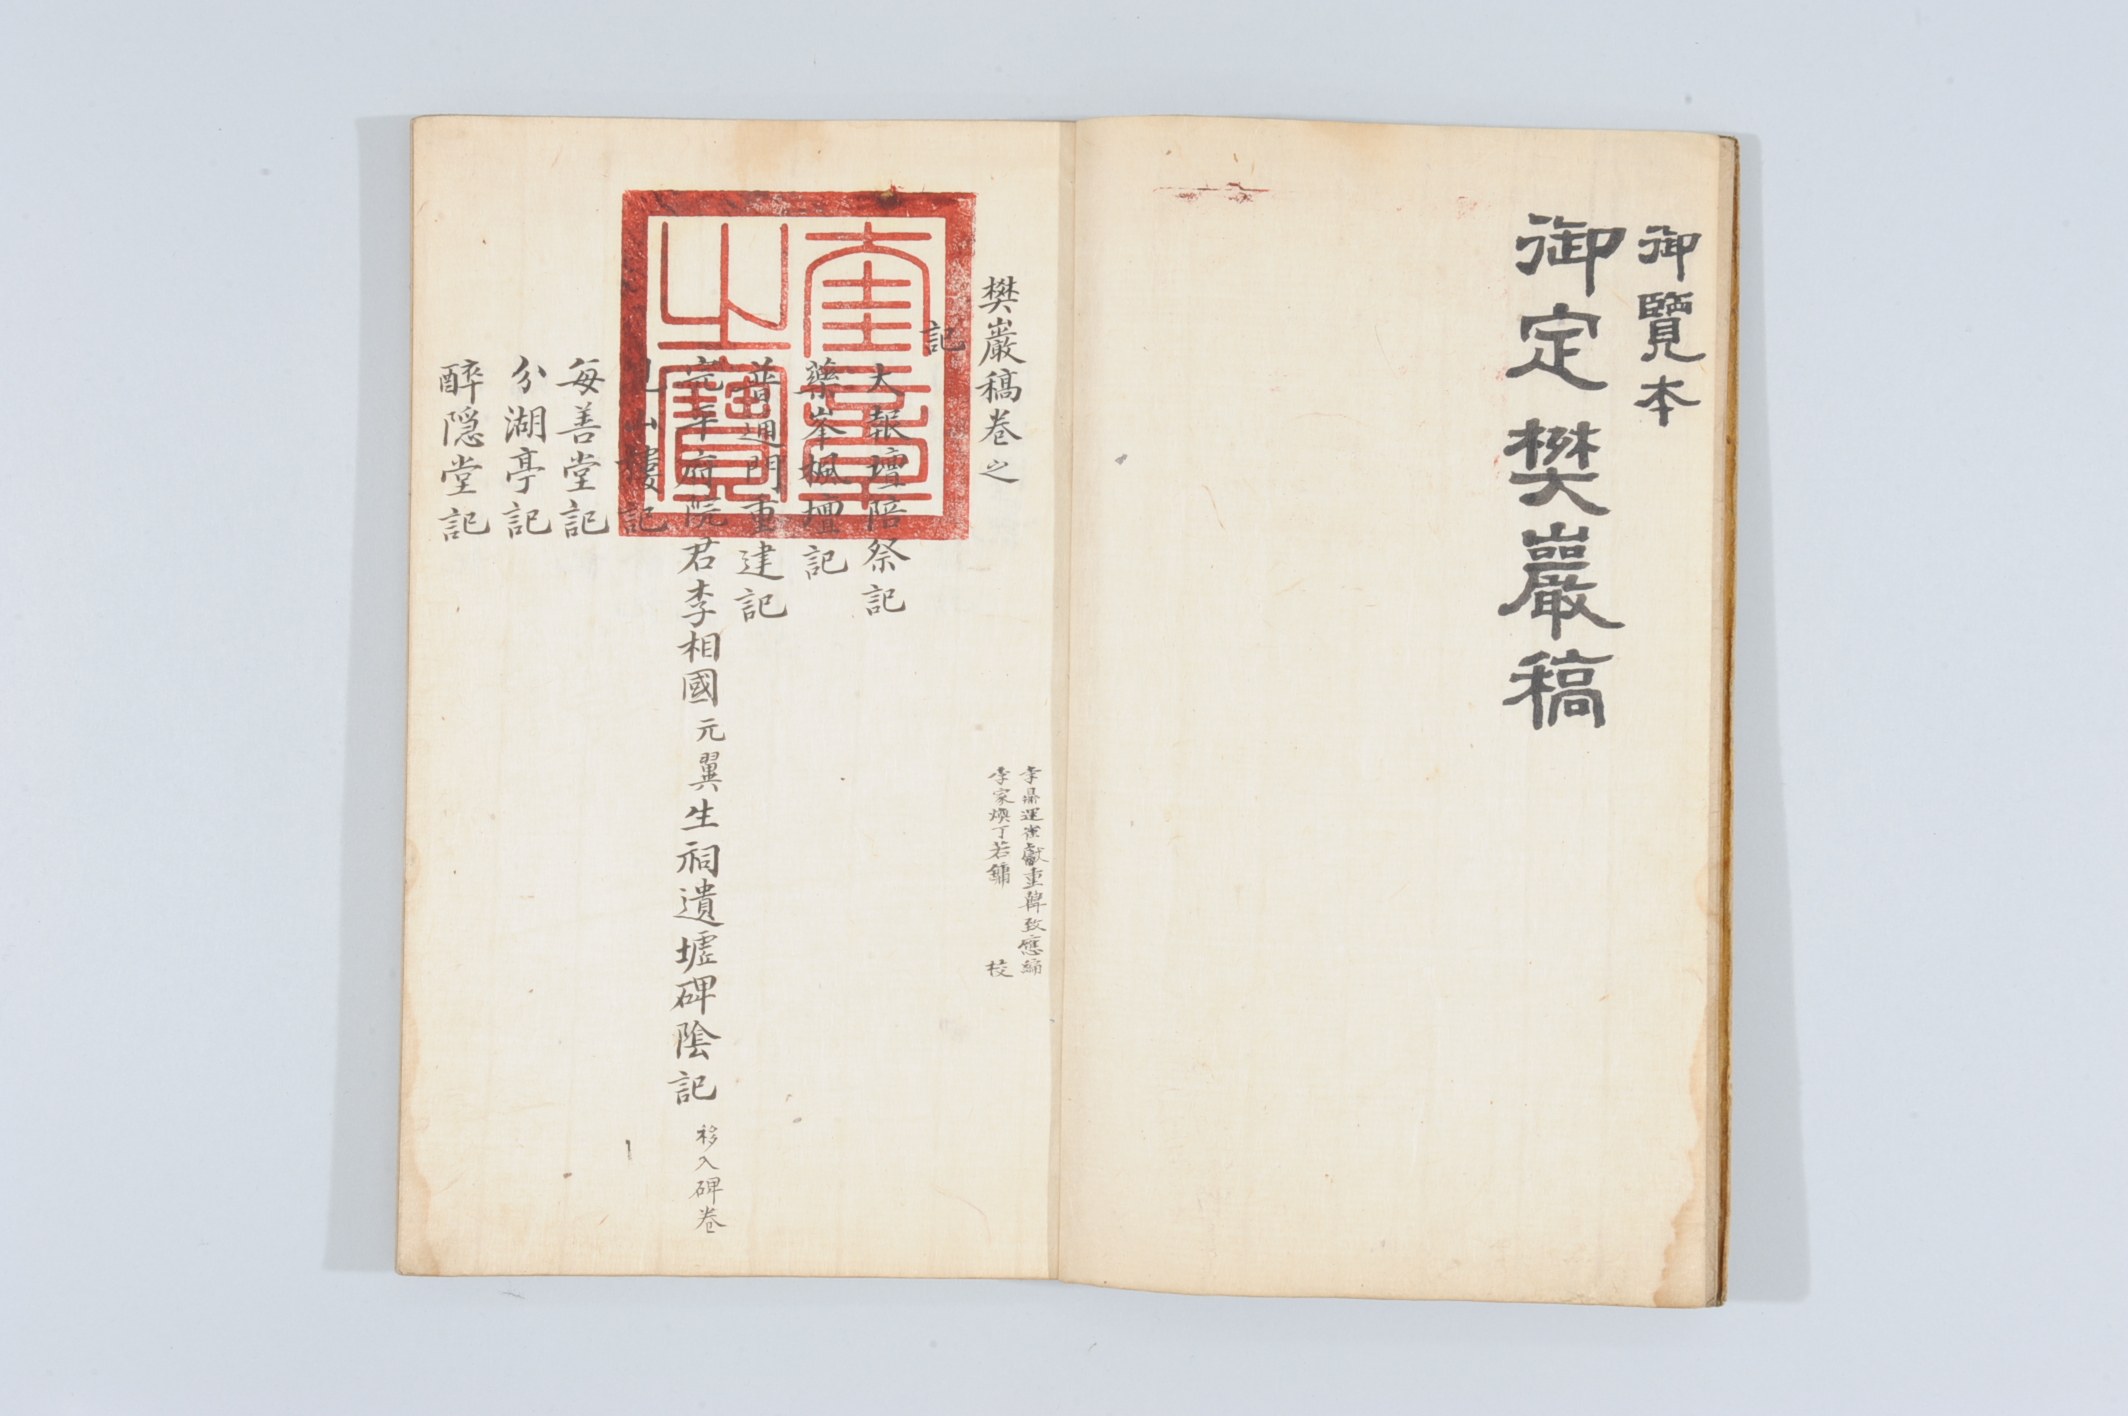 御覽本
御定樊巖稿
樊巖稿卷之
李鼎運崔獻重韓致應編
李家煥丁若鏞 校
記
大報壇陪祭記
藥峯楓壇記
普通門重建記
完平府院君李相國元翼生祠遺墟碑陰記 移入碑卷
山樓記
每善堂記
分湖亭記
醉隱堂記
奎章之寶